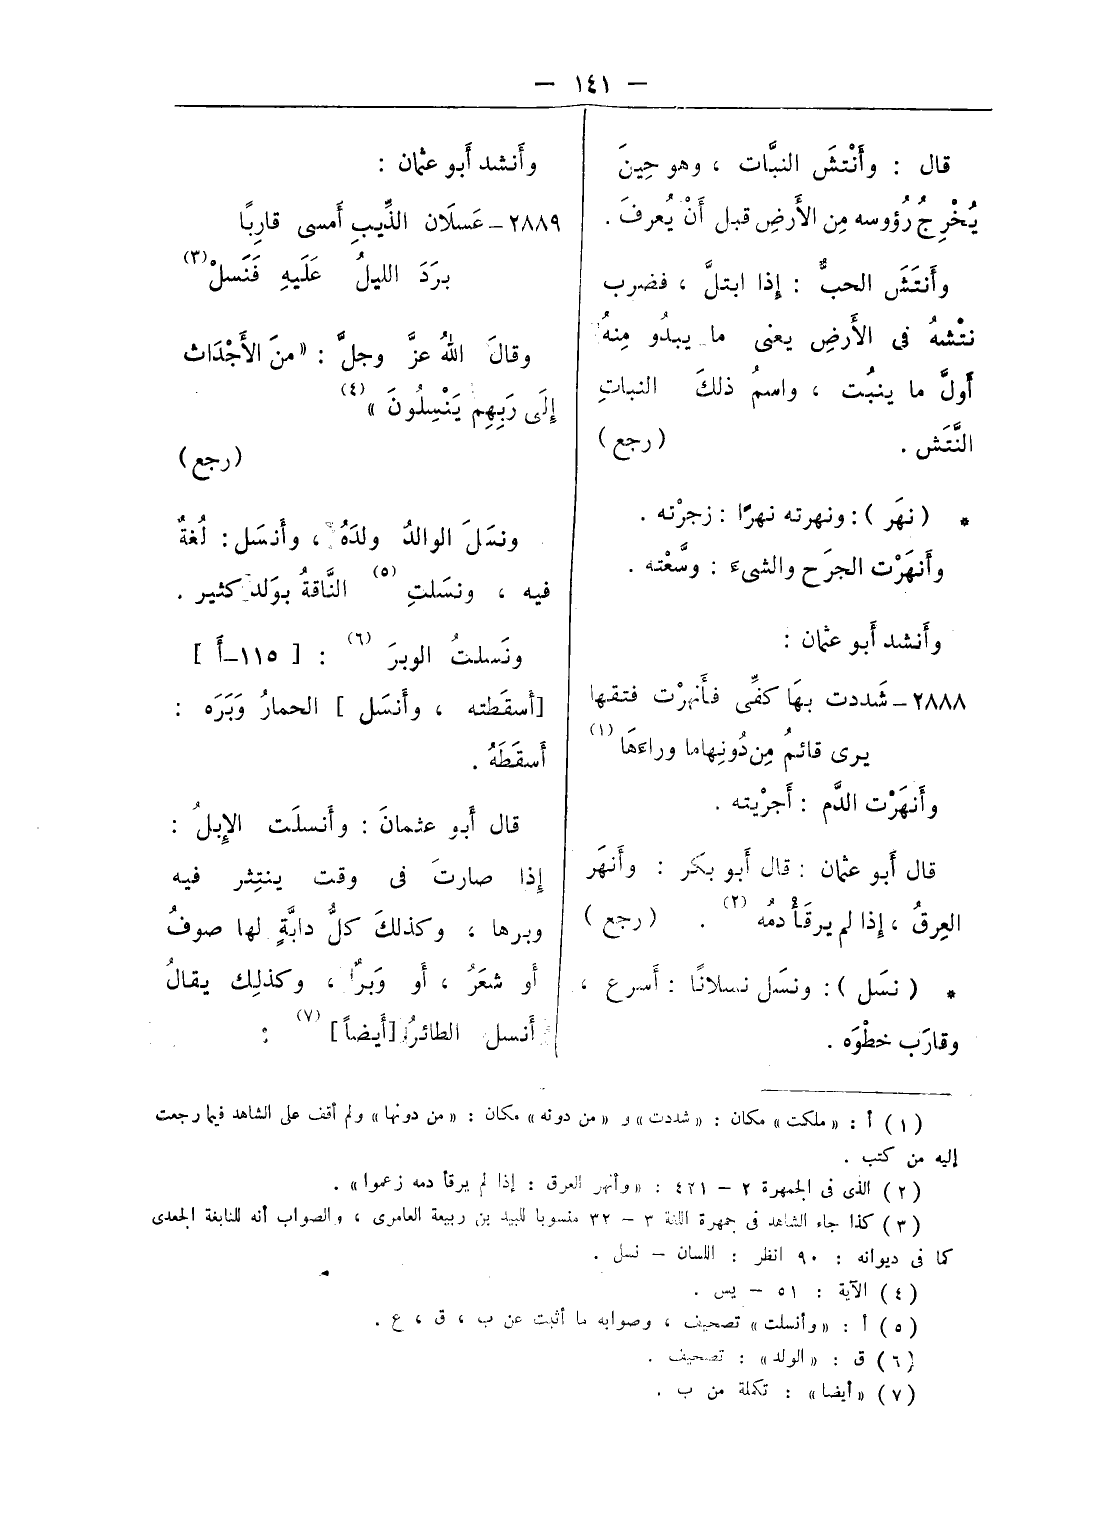 — ١٤١ —
قال : وأَنْتَشَ النبَّات ، وهو حِينَ
يُخْرِجُ رُؤوسه مِن الأَرضِ قبل أَنْ يُعرفَ .
وأَنتَشَ الحبُّ : إِذا ابتلَّ ، فضرب
نتْشهُ فى الأَرضِ يعنى ما يبدُو مِنهُ
أَولَّ ما ينبُت ، واسمُ ذلكَ النباتِ
النَّتَش . (رجع)
* (نهَر) : ونهرته نهرًا : زجرْته .
وأَنهَرْت الجرَح والشىءَ : وسَّعْته .
وأَنشد أَبو عثمان :
٢٨٨٨ – شَددت بهَا كفِّى فأَنهرْت فتقها
يرى قائمُ مِن دُونِهاما وراءَهَا (١)
وأَنهَرْت الدَّم : أَجرْيته .
قال أَبو عثمان : قال أَبو بكَر : وأَنهَر
العِرقُ ، إِذا لم يرقَأْ دمُه (٢) . (رجع)
* (نسَل) : ونسَل نسلانًا : أَسرع ،
وقارَب خطْوَه .
وأَنشد أَبو عثمان :
٢٨٨٩ – عَسلَان الذِّيبِ أَمسى قارِبًا
برَدَ الليلُ عَلَيهِ فَنَسلْ (٣)
وقالَ اللهُ عزَّ وجلَّ : «منَ الأَجْدَاث
إِلَى رَبِهِم يَنْسِلُونَ» (٤)
(رجع)
ونسَلَ الوالدُ ولدَهُ ، وأَنسَل : لُغةٌ
فيه ، ونسَلتِ (٥) النَّاقةُ بوَلد كثير .
ونَسلتُ الوبرَ (٦) : [ ١١٥–أَ ]
[أَسقَطته ، وأَنسَل ] الحمارُ وَبَرَه :
أَسقَطَهُ .
قال أَبو عثمانَ : وأَنسلَت الإِبلُ :
إِذا صارتَ فى وقت ينتِثر فيه
وبرها ، وكذلكَ كلُّ دابَّةٍ لها صوفُ
أَو شعَرُ ، أَو وَبرٌ ، وكذلِك يقالُ
أَنسل الطائرُ [أَيضاً] (٧) :
(١) أ : «ملكت» مكان : «شددت» و «من دونه» مكان : «من دونها» ولم أقف على الشاهد فيما رجعت
إليه من كتب .
(٢) الذى فى الجمهرة ٢ – ٤٢١ : «وأنهر العرق : إذا لم يرقأ دمه زعموا» .
(٣) كذا جاء الشاهد فى جمهرة اللغة ٣ – ٣٢ منسوبا للبيد بن ربيعة العامرى ، والصواب أنه للنابغة الجعدى
كما فى ديوانه : ٩٠ انظر : اللسان – نسل .
(٤) الآية : ٥١ – يس .
(٥) أ : «وأنسلت» تصحيف ، وصوابه ما أثبت عن ب ، ق ، ع .
(٦) ق : «الولد» : تصحيف .
(٧) «أيضا» : تكملة من ب .